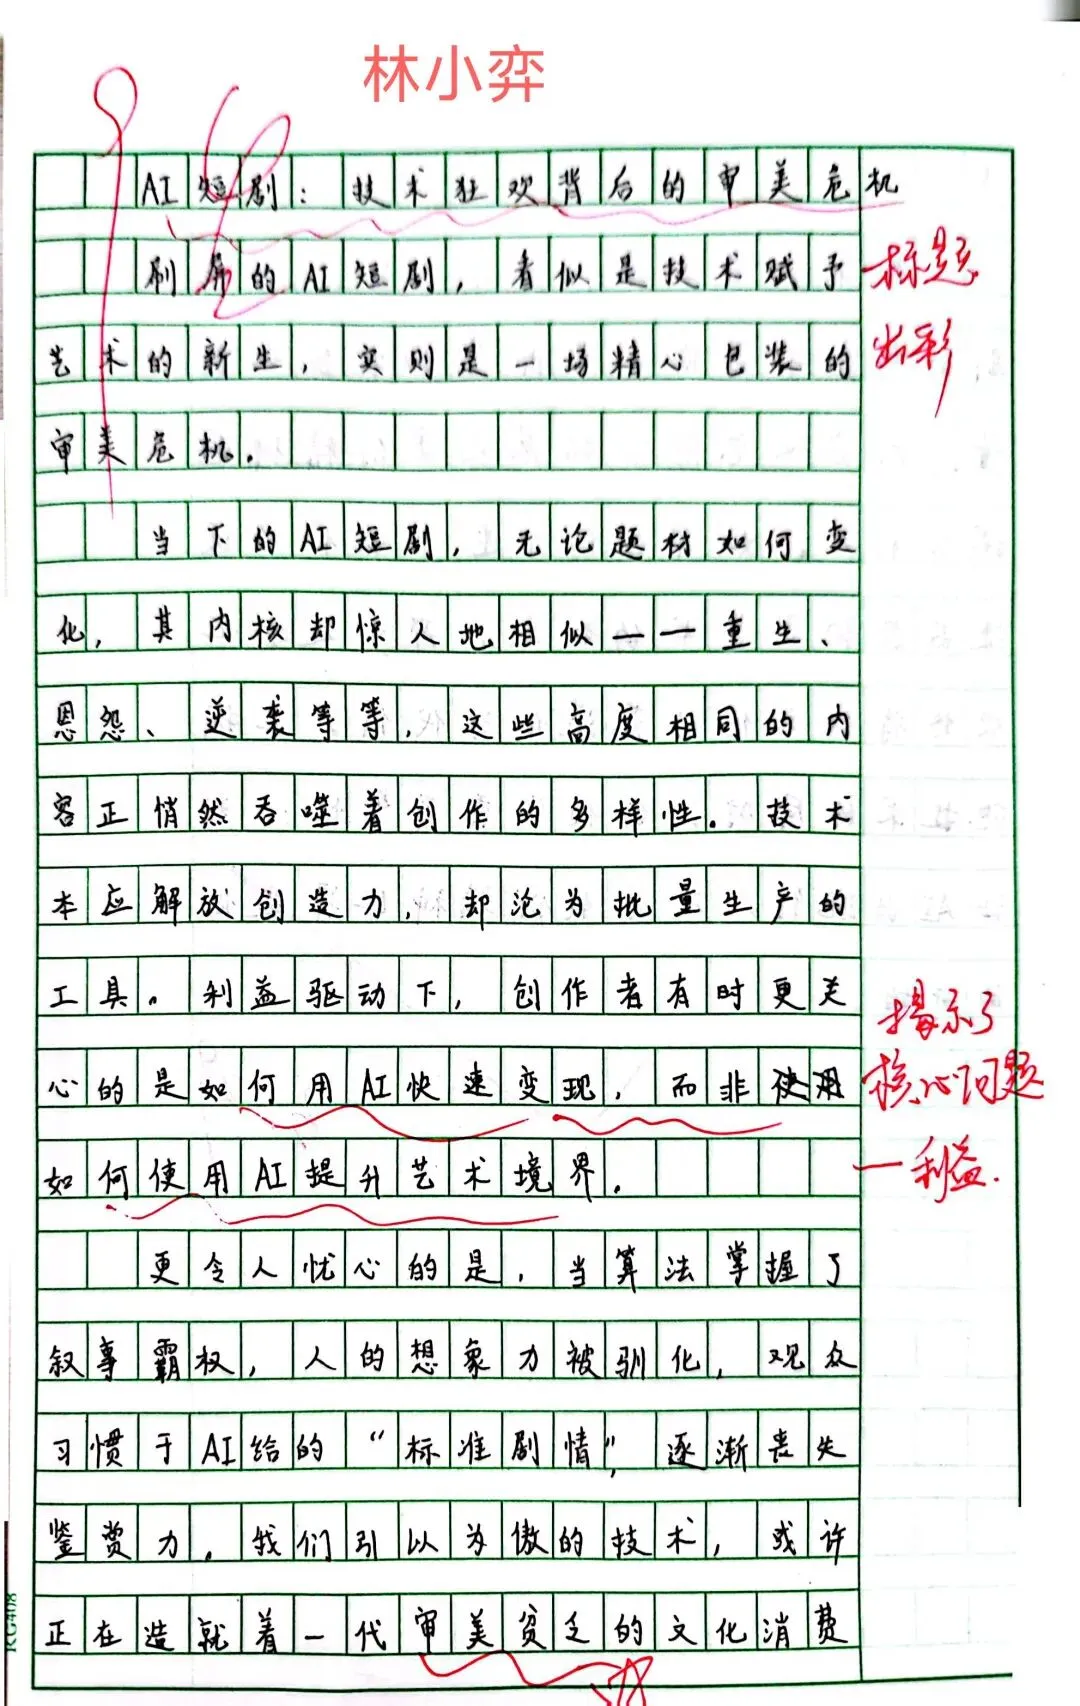 林小弈
AI短剧：技术狂欢背后的审美危机
刷屏的AI短剧，看似是技术赋予
标题
艺术的新生，实则是一场精心包装的
出彩
审美危机。
当下的AI短剧，无论题材如何变
化，其内核却惊人地相似——重生、
恩怨、逆袭等等，这些高度相同的内
容正悄然吞噬着创作的多样性。技术
本应解放创造力，却沦为批量生产的
工具。利益驱动下，创作者有时更关
揭示了
心的是如何用AI快速变现，而非使用
核心问题
如何使用AI提升艺术境界。
—利益.
更令人忧心的是，当算法掌握了
叙事霸权，人的想象力被驯化，观众
习惯于AI给的“标准剧情”，逐渐丧失
鉴赏力。我们引以为傲的技术，或许
正在造就着一代审美贫乏的文化消费
KG408